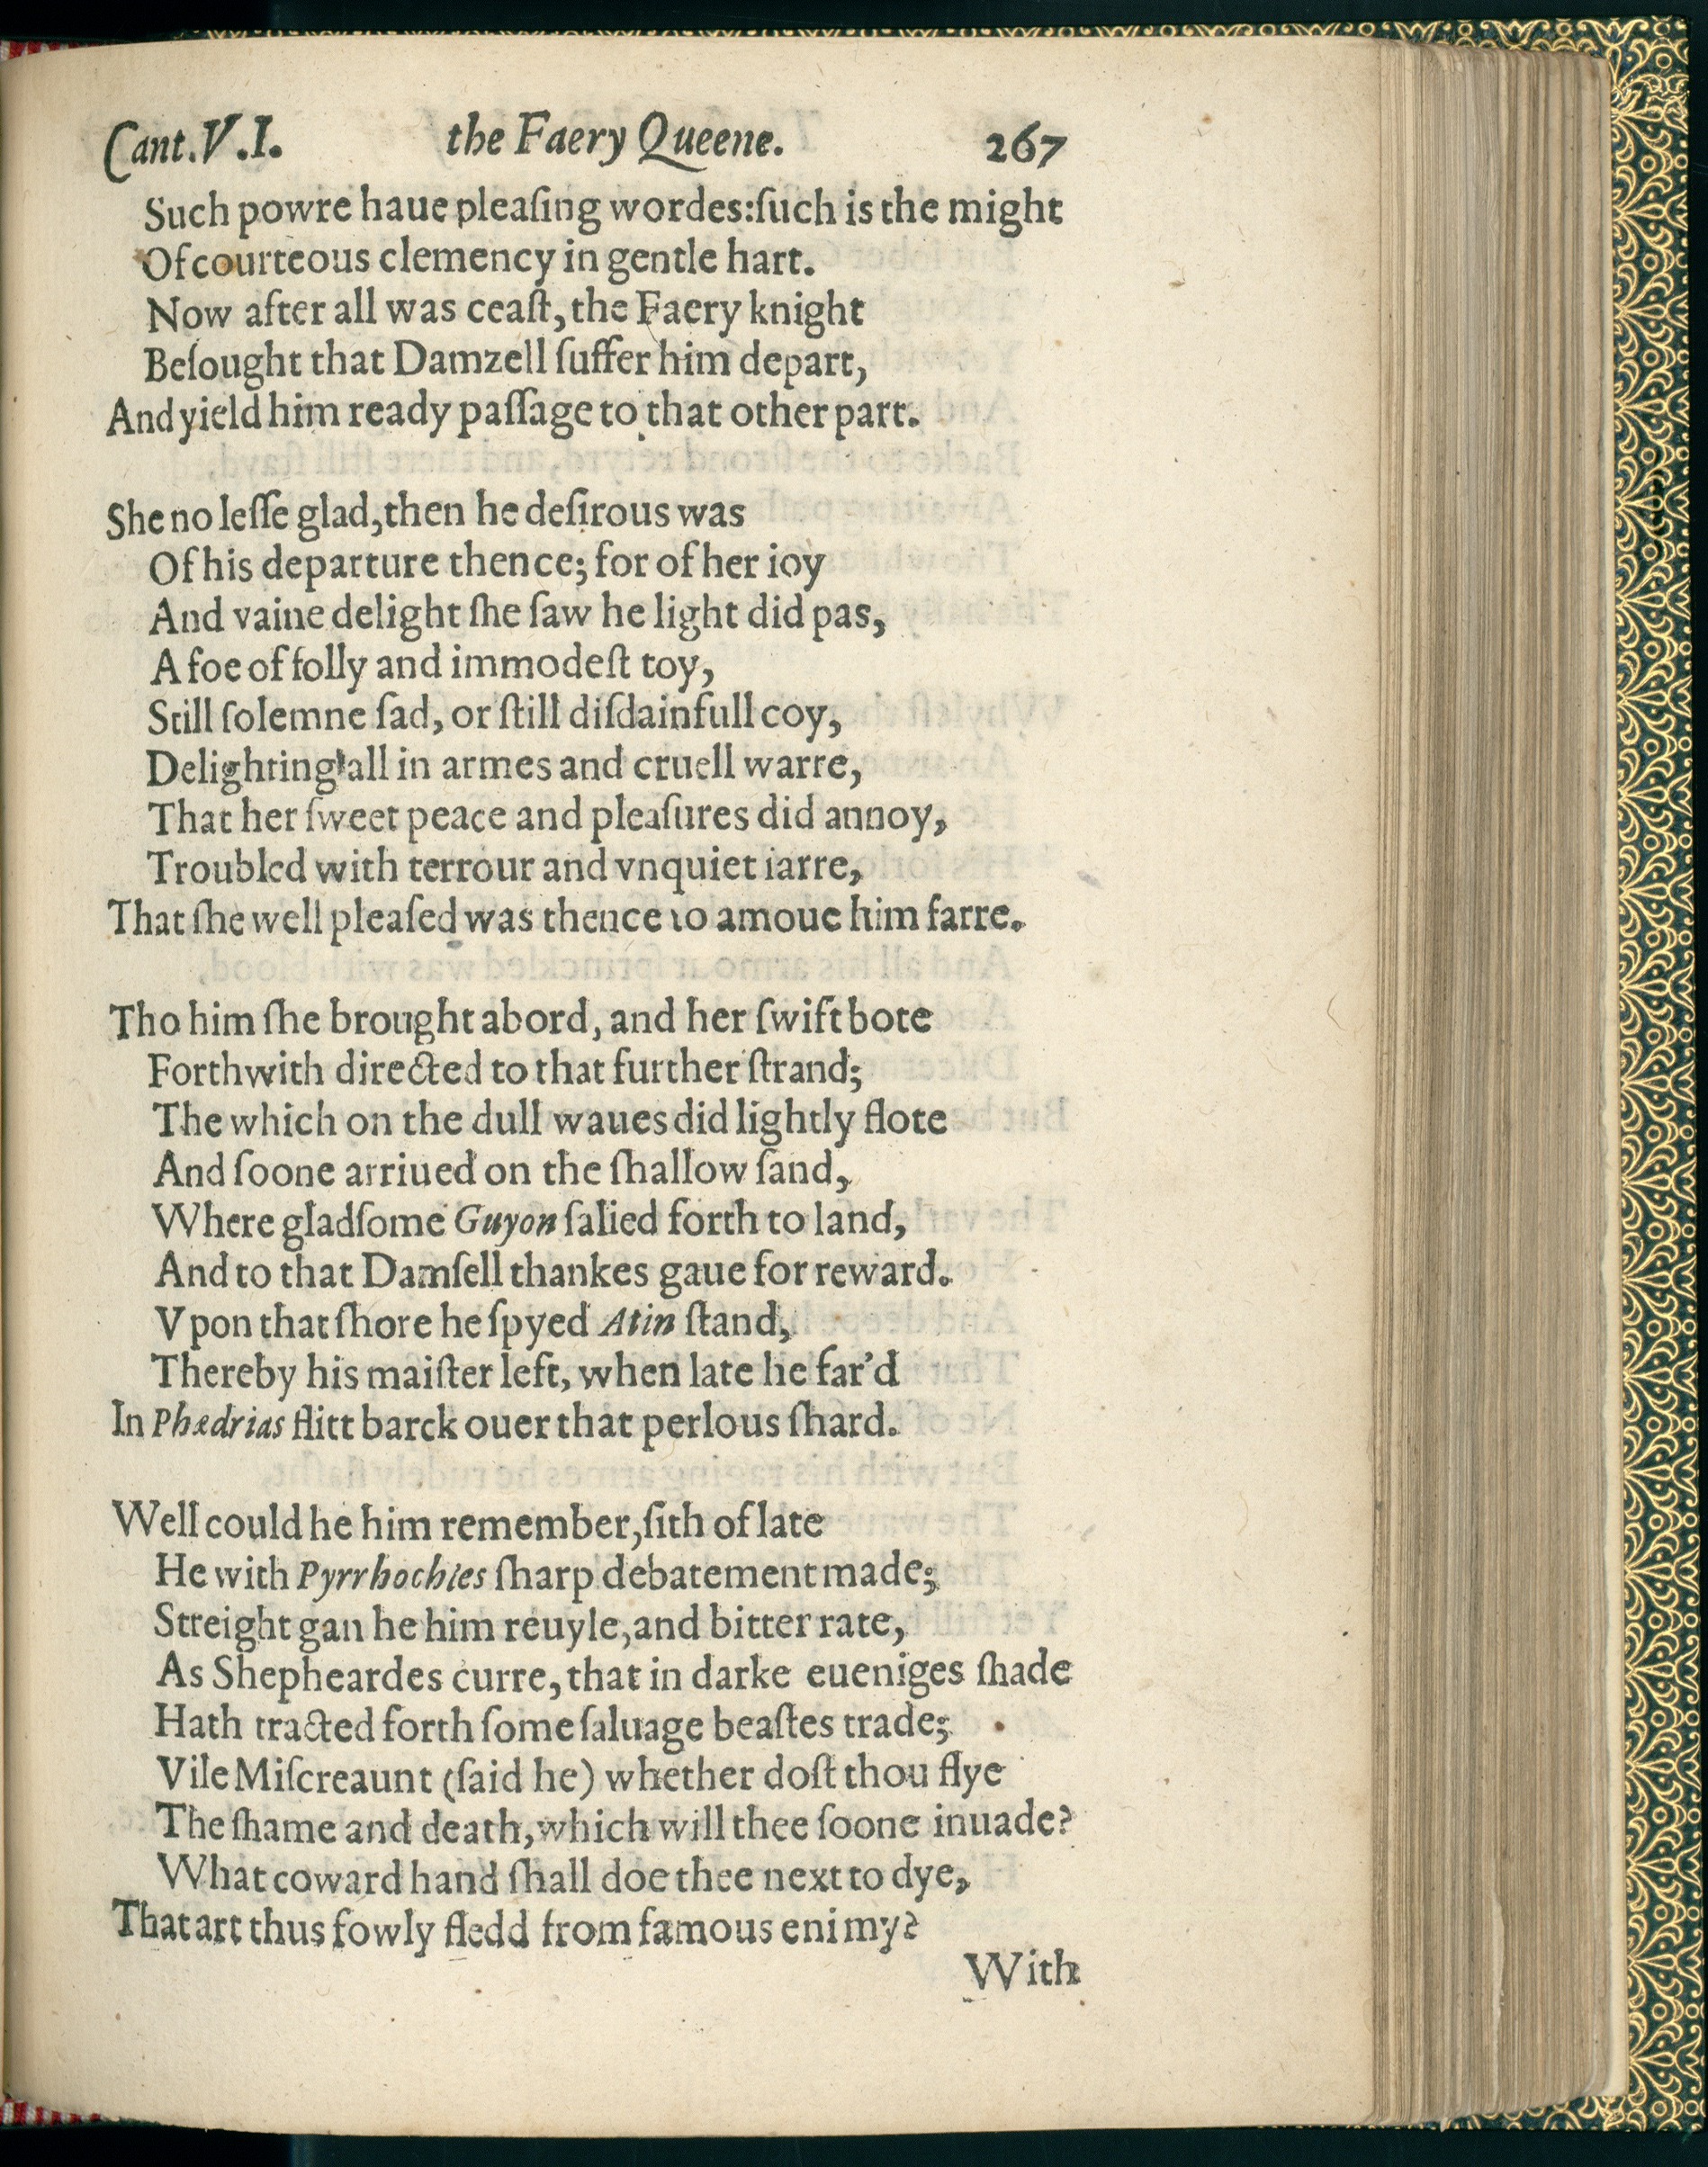 Cant.V.I. the Faery Queene. 267
Such powre haue pleaſing wordes:ſuch is the might
Of courteous clemency in gentle hart.
Now after all was ceaſt, the Faery knight
Beſought that Damzell ſuffer him depart,
And yield him ready paſſage to that other part.
She no leſſe glad, then he deſirous was
Of his departure thence; for of her ioy
And vaine delight ſhe ſaw he light did pas,
A foe of folly and immodeſt toy,
Still ſolemne ſad, or ſtill diſdainfull coy,
Delighting all in armes and cruell warre,
That her ſweet peace and pleaſures did annoy,
Troubled with terrour and vnquiet iarre,
That ſhe well pleaſed was thence to amoue him farre.
Tho him ſhe brought abord, and her ſwift bote
Forthwith directed to that further ſtrand;
The which on the dull waues did lightly flote
And ſoone arriued on the ſhallow ſand,
Where gladſome Guyon ſalied forth to land,
And to that Damſell thankes gaue for reward.
Vpon that ſhore he ſpyed Atin ſtand,
Thereby his maiſter left, when late he far'd
In Phædrias flitt barck ouer that perlous ſhard.
Well could he him remember, ſith of late
He with Pyrrhochles ſharp debatement made;
Streight gan he him reuyle, and bitter rate,
As Shepheardes curre, that in darke eueniges ſhade
Hath tracted forth ſome ſaluage beaſtes trade;
Vile Miſcreaunt (ſaid he) whether doſt thou flye
The ſhame and death, which will thee ſoone inuade?
What coward hand ſhall doe thee next to dye,
That art thus fowly fledd from famous enimy?
With